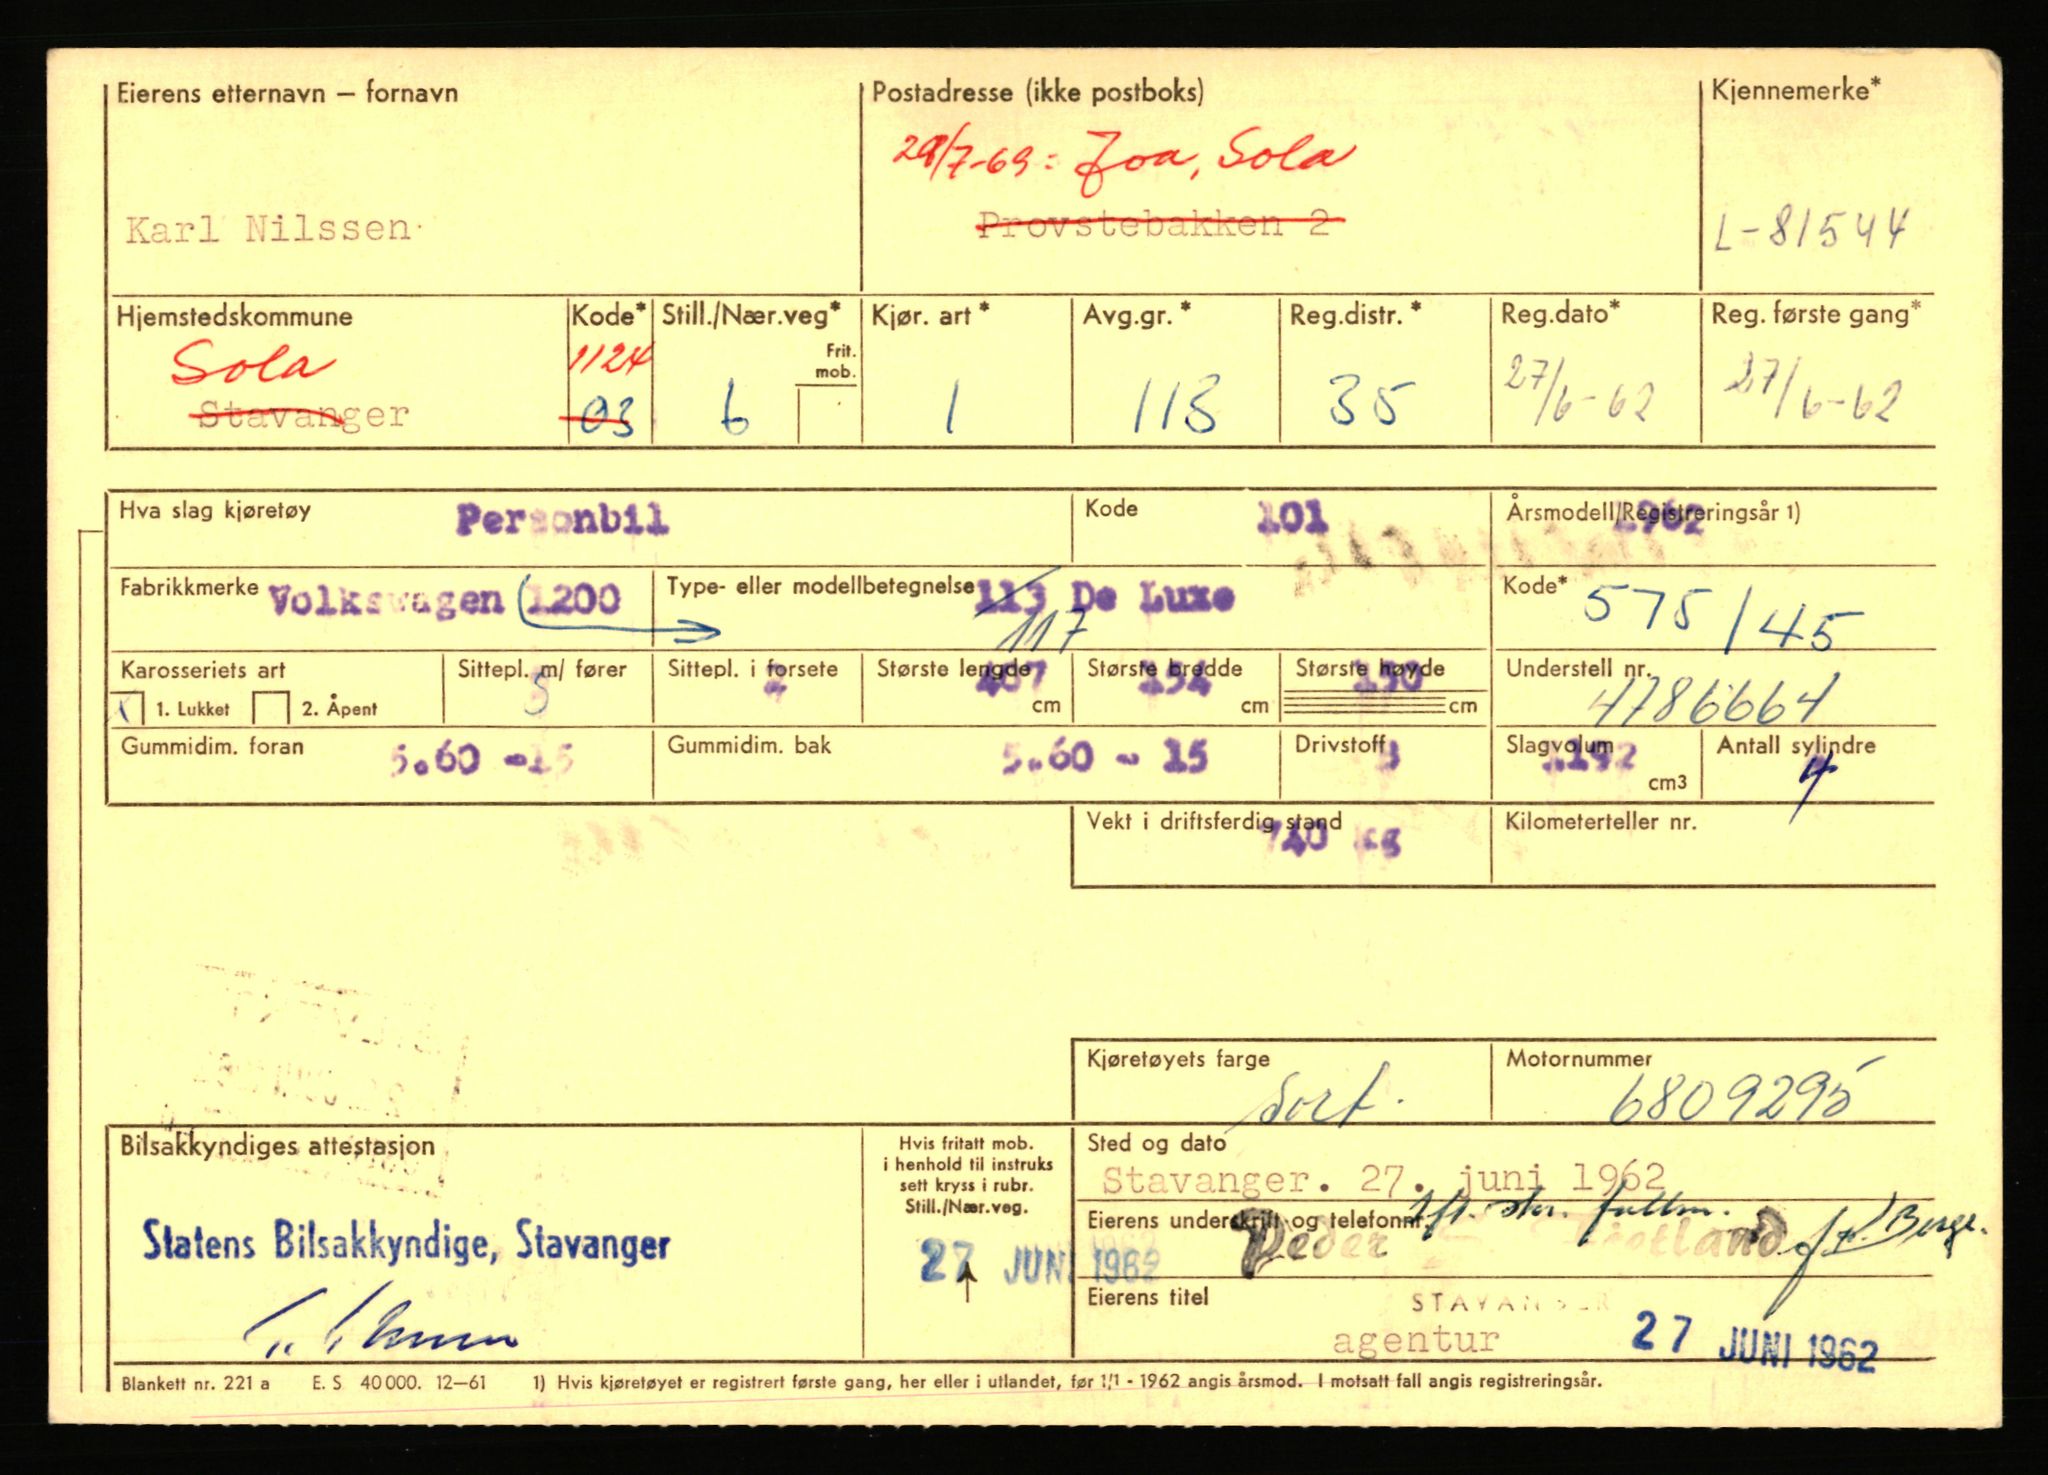 Eierens etternavn — fornavn
Postadresse (ikke postboks)
Kjennemerke*
29/7-69: Joa, Sola
Karl Nilssen
Provstebakken 2
L-81544
Hjemstedskommune
Kode*
Still./Nær.veg*
Kjør. art*
Avg.gr.*
Reg.distr.*
Reg.dato*
Reg. første gang*
Sola
1124
Frit. mob.
Stavanger
03
6
1
113
35
27/6-62
27/6-62
Hva slag kjøretøy
Personbil
Kode
101
Årsmodell/Registreringsår 1)
1962
Fabrikkmerke
Volkswagen (1200
Type- eller modellbetegnelse
113 De Luxe
117
Kode*
575/45
Karosseriets art
1. Lukket
2. Åpent
Sittepl. m/ fører
5
Sittepl. i forsete
2
Største lengde
407
cm
Største bredde
154
cm
Største høyde
150
cm
Understell nr.
4786664
Gummidim. foran
5.60 -15
Gummidim. bak
5.60 - 15
Drivstoff
Slagvolum
1192
cm3
Antall sylindre
4
Vekt i driftsferdig stand
740 kg
Kilometerteller nr.
Kjøretøyets farge
Sort.
Motornummer
6809295
Bilsakkyndiges attestasjon
Hvis fritatt mob.
i henhold til instruks
sett kryss i rubr.
Still./Nær.veg.
Sted og dato
Stavanger. 27. juni 1962
Statens Bilsakkyndige, Stavanger
27 JUNI 1962
Eierens underskrift og telefonnr.
Peder
Berge.
Eierens titel
STAVANGER
agentur
27 JUNI 1962
Blankett nr. 221 a E. S 40 000. 12—61 1) Hvis kjøretøyet er registrert første gang, her eller i utlandet, før 1/1 - 1962 angis årsmod. I motsatt fall angis registreringsår.